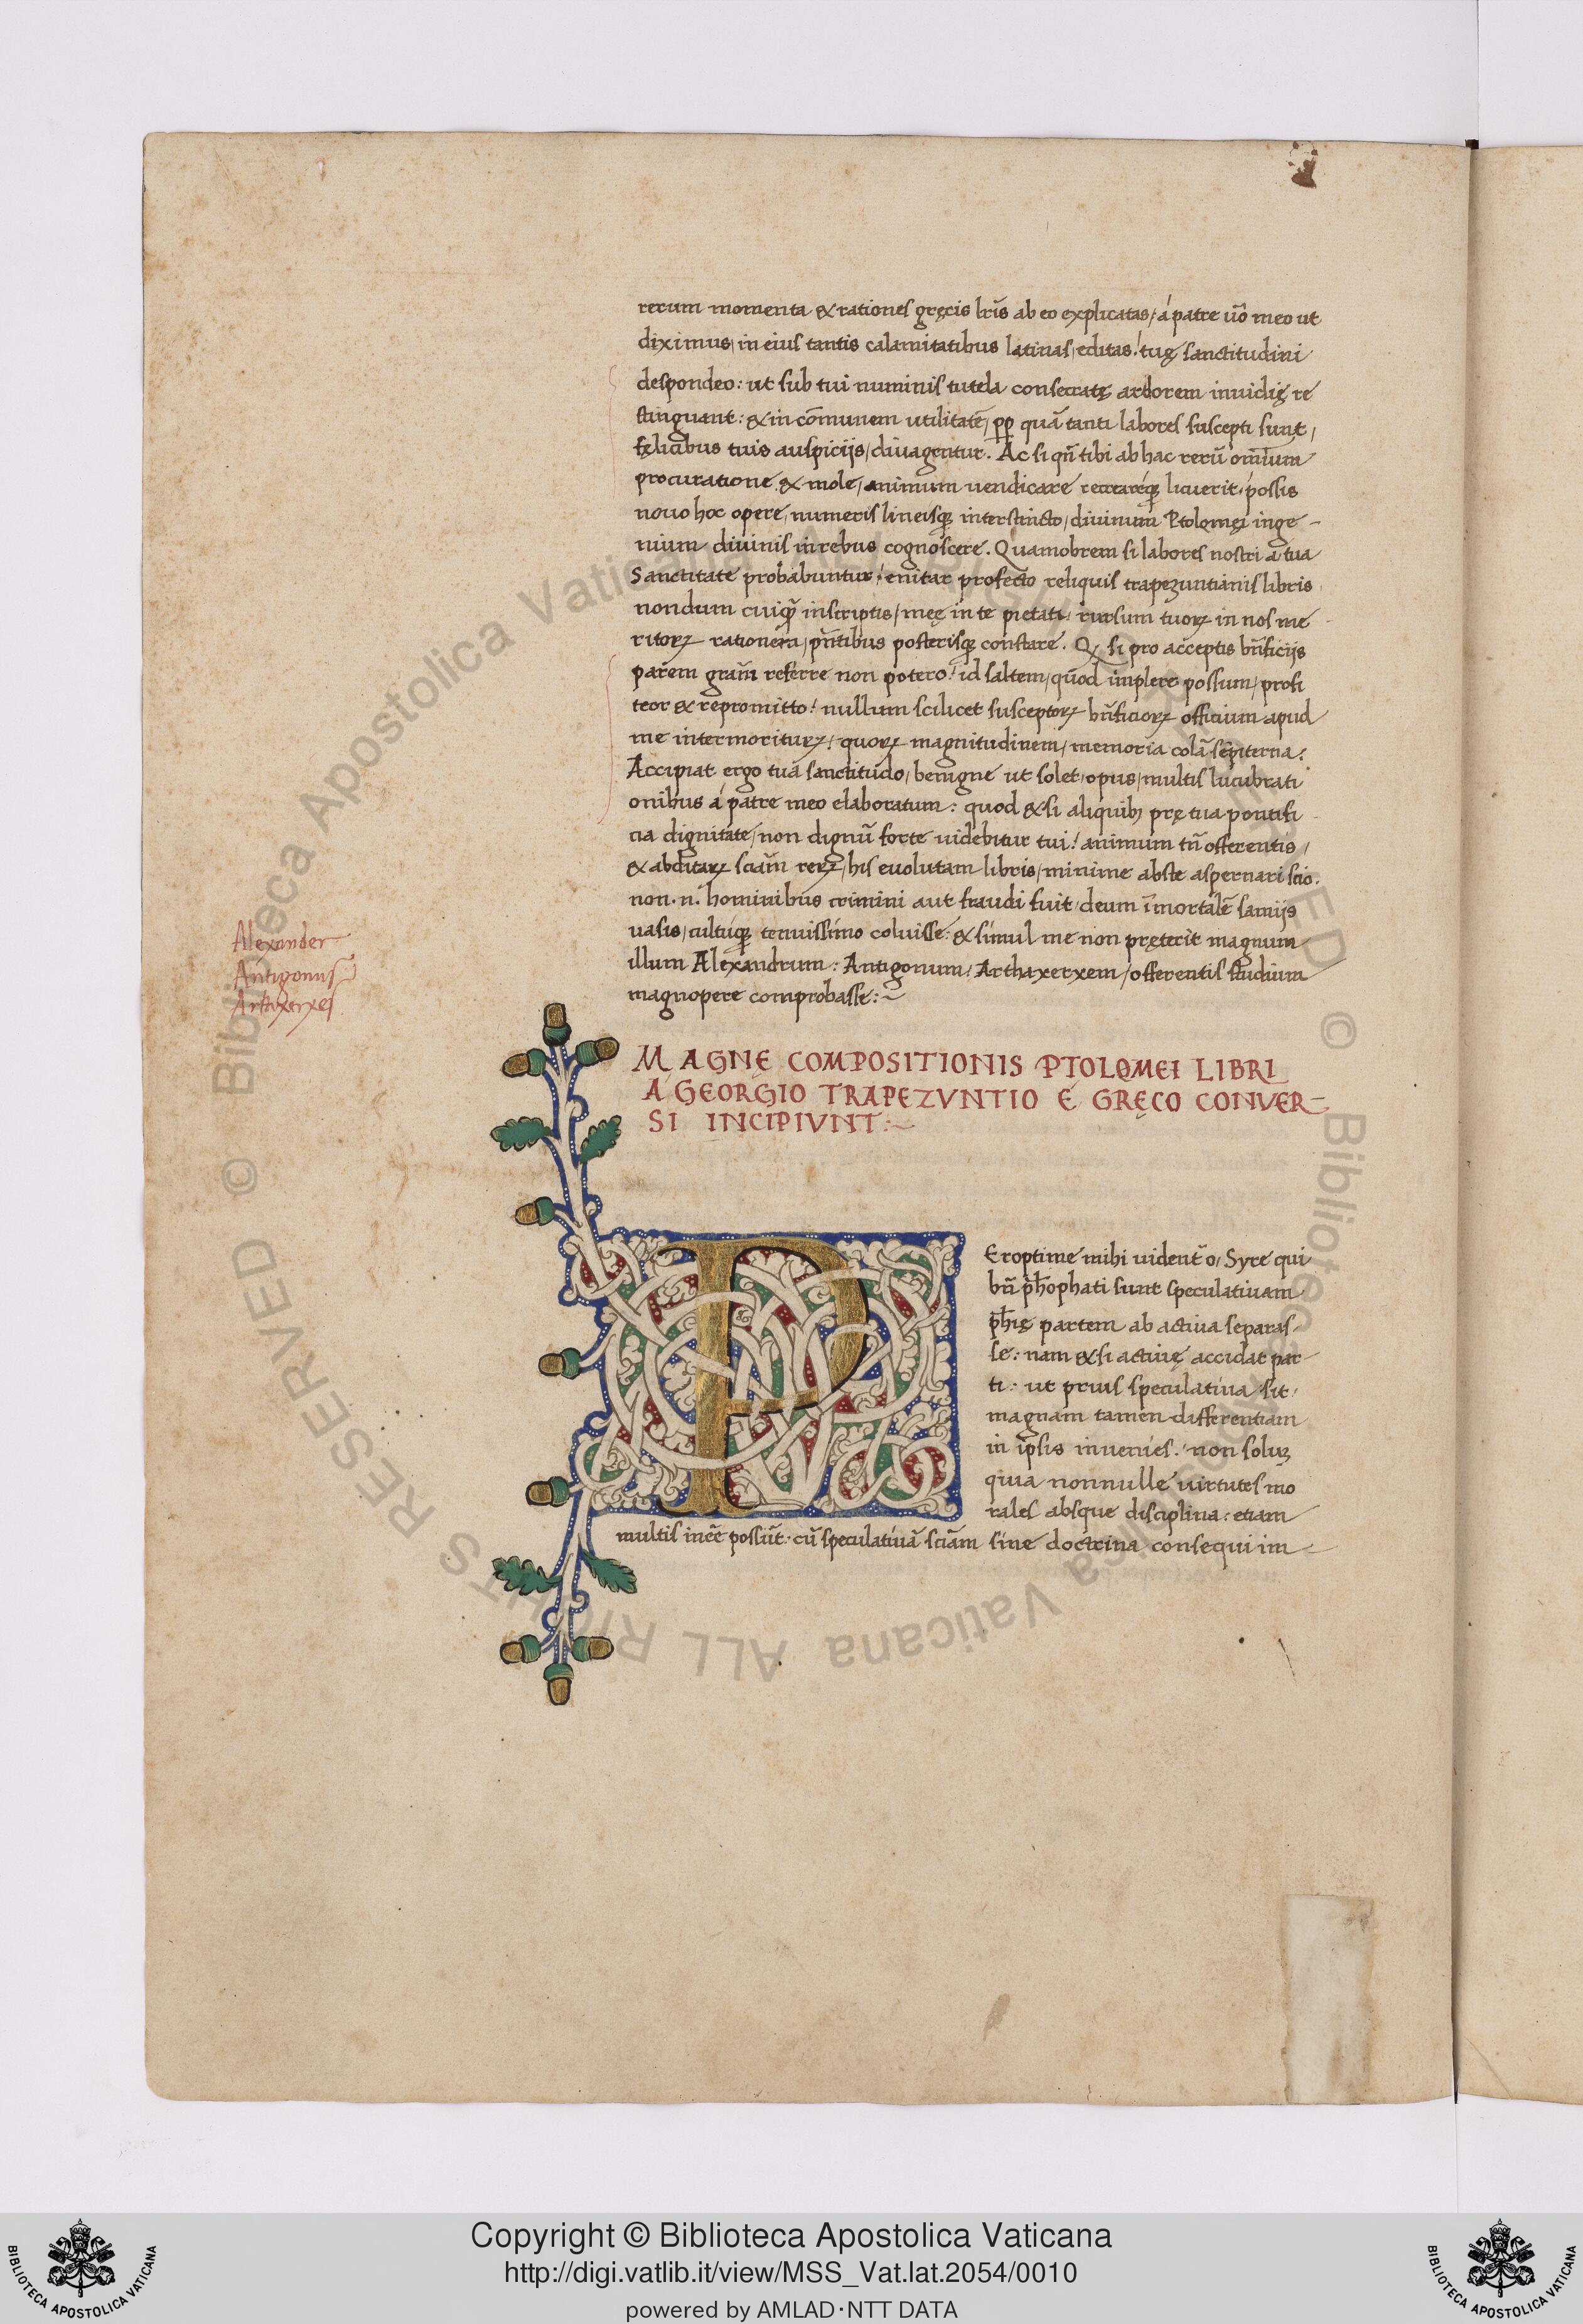 rerum momenta & rationes gręcis lr̃is ab eo explicatas/ á patre ũo meo ut
diximus/ in eius tantis calamitatibus latinas/ editas! tuę sanctitudini
despondeo: ut sub tui numinis tutela consecratę ardorem inuidię re
stinguant: & in cõmunem utilitatẽ/ ꝓp̱ quã tanti labores suscepti sunt/
fęlicibus tuis auspicijs/ diuagentur. Ac si qñ tibi ab hac rerũ omĩum
procuratione & mole/ animum uendicare recreareq́ꝫ licuerit/ possis
nouo hoc opere/ numeris lineisqꝫ interstincto/ diuinum Ptolomęi inge-
nium diuinis in rebus cognoscere. Quamobrem si labores nostri a tua
Sanctitate probabuntur! enitar profecto reliquis trapezuntianis libris
nondum cuiqꝫ̃ inscriptis/ meę in te pietati/ rursum tuoꝝ in nos me
ritoꝝ rationem/ p̃ntibus posterisqꝫ constare. Q̱ si pro acceptis bñficijs
parem gram̃ referre non potero! id saltem/ quod implere possum/ profi
teor & repromitto! nullum scilicet susceptoꝝ bñficioꝝ officium apud
me intermorituꝝ/ quoꝝ magnitudinem/ memoria colã sẽpiterna.
Accipiat ergo tua sanctitudo/ benigne ut solet/ opus/ multis lucubrati
onibus á patre meo elaboratum: quod & si aliquibꝫ prę tua pontifi
cia dignitate/ non dignũ forte uidebitur tui! animum tñ offerentis/
& abditaꝝ sciam̃ reꝝ/ his euolutam libris/ minime abste aspernari scio.
non .n. hominibus crimini aut fraudi fuit/ deum ĩmortalẽ samijs
uasis/ cultuq́ꝫ tenuissimo coluisse: & simul me non pręterit magnum
illum Alexandrum: Antigonum! Arthaxerxem/ offerentis studium
magnopere comprobasse:~
Alexander
Antigonus
Artaxerxes
MAGNĘ COMPOSITIONIS PTOLOMEI LIBRI
Á GEORGIO TRAPEZVNTIO É GRĘCO CONVER-
SI INCIPIVNT:~
P
Eroptime mihi uident̃ o/ Syre qui
bñ p̃hophati sunt speculatiuam
p̃hię partem ab actiua separas-
se: nam & si actiuę accidat par-
ti: ut prius speculatiua sit/
magnam tamen differentiam
in ip̃sis inuenies! non soluꝫ
quia nonnulle uirtutes mo
rales absque disciplina: etiam
multis ineẽ̵ possũt. cũ speculatiuã sciãm sine doctrina consequi im-
Copyright © Biblioteca Apostolica Vaticana
http://digi.vatlib.it/view/MSS_Vat.lat.2054/0010
powered by AMLAD·NTT DATA
BIBLIOTECA APOSTOLICA VATICANA
BIBLIOTECA APOSTOLICA VATICANA
© Biblioteca Apostolica Vaticana ALL RIGHTS RESERVED
© Biblioteca Apostolica Vaticana ALL RIGHTS RESERVED